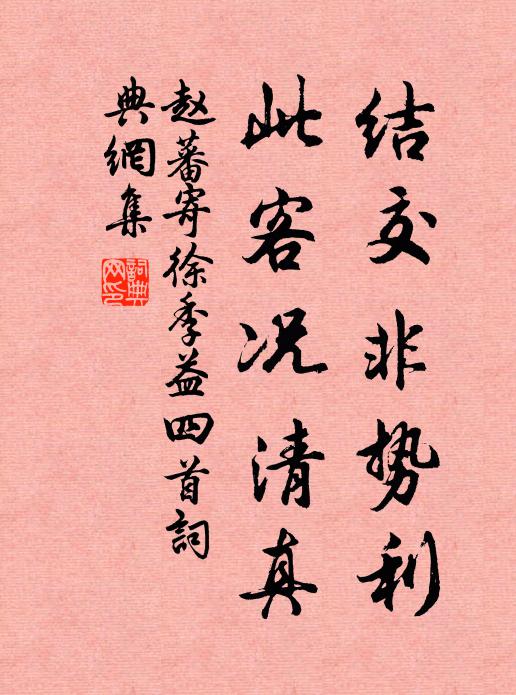 结交非势利
此客况清真
赵蕃寄徐季益四首詞
典網集
詞典網印